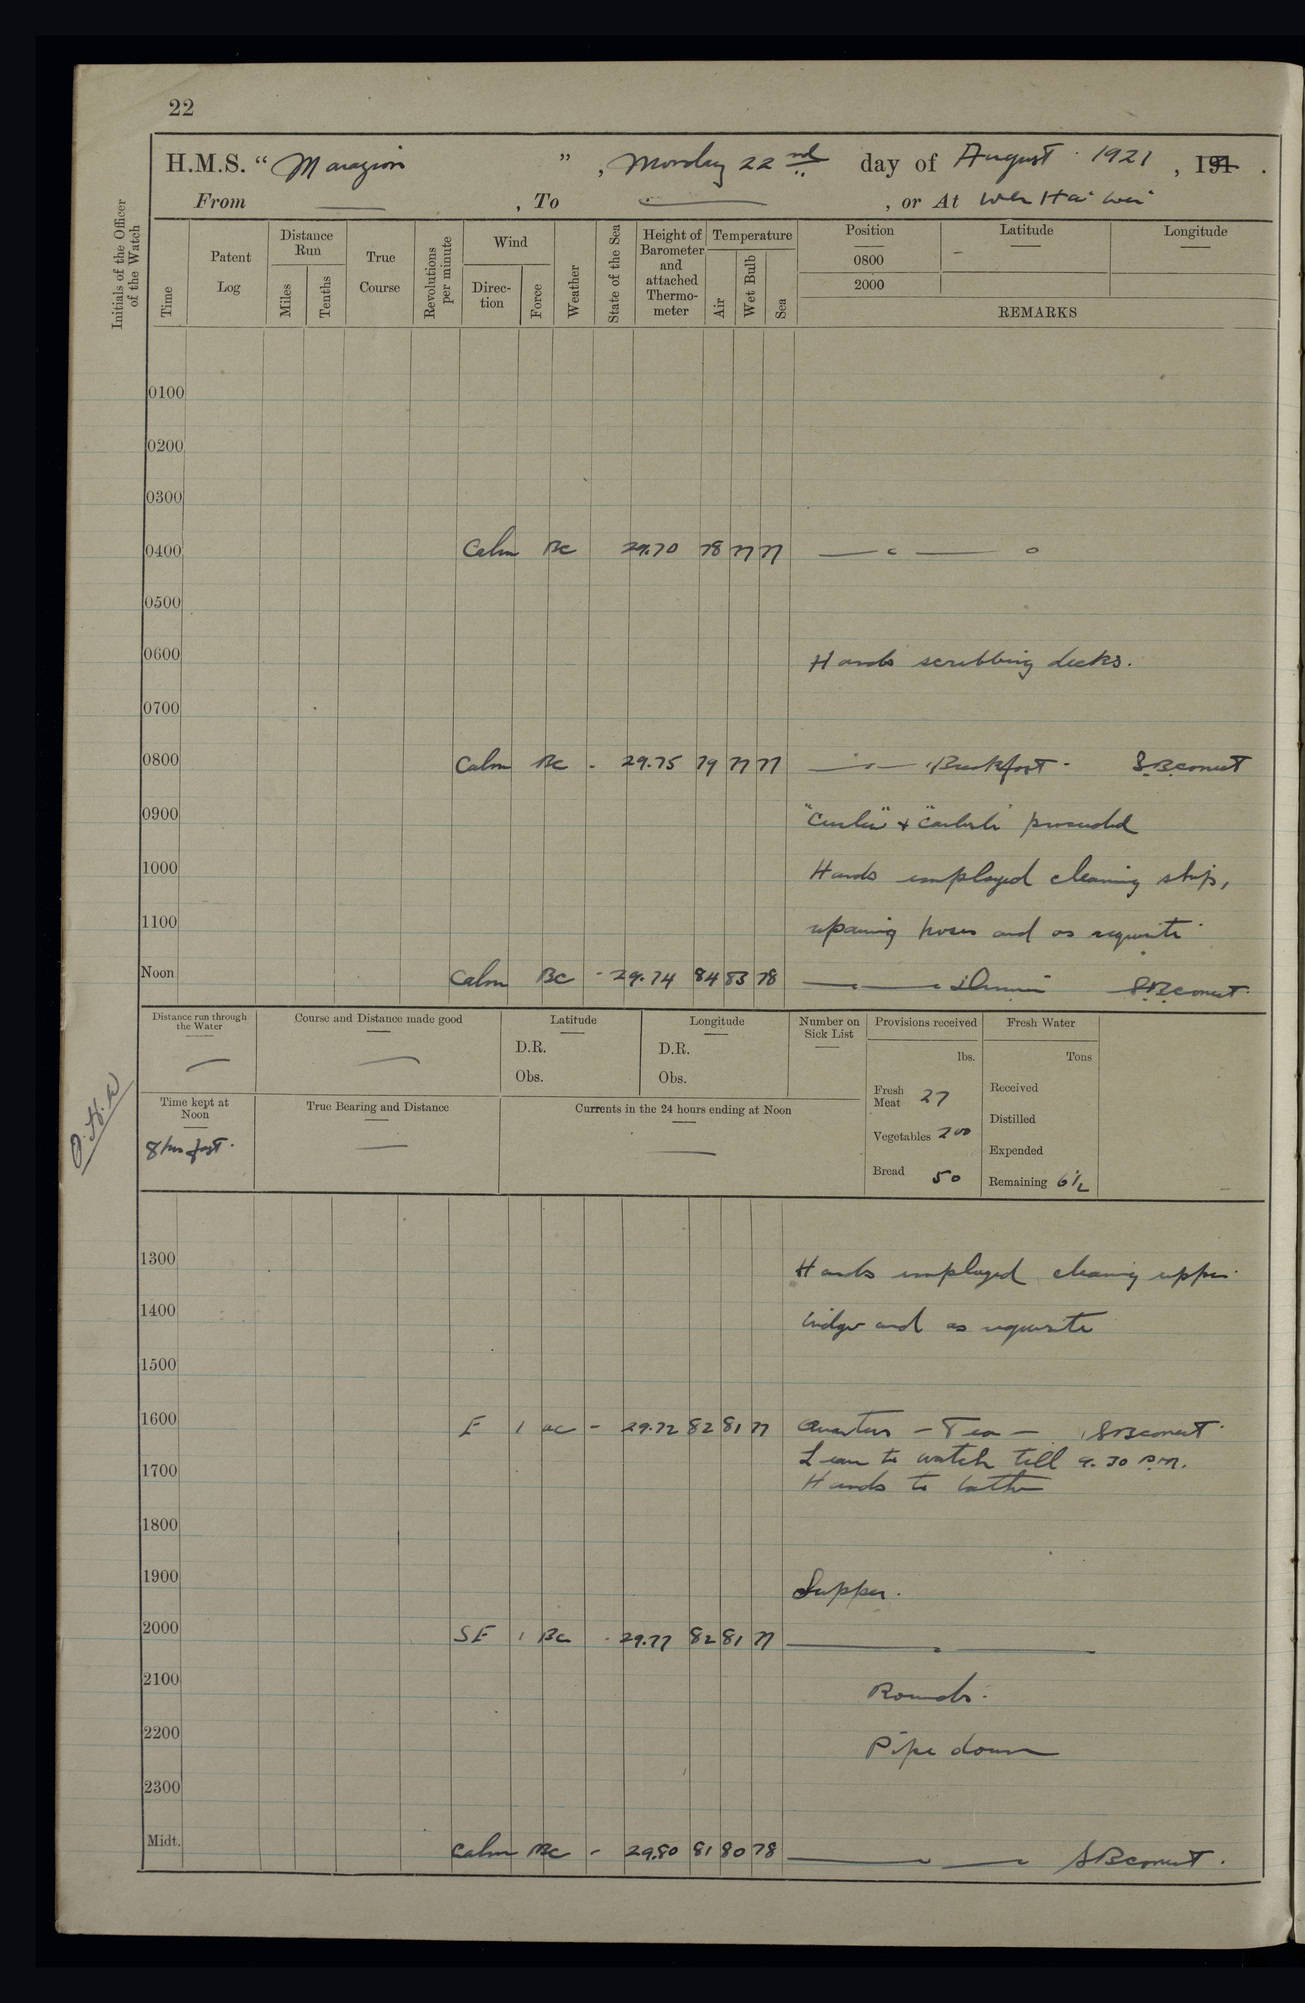 22
H.M.S. “ Marazion ” , Monday 22nd day of August 1921 , 191 .
From — , To — , or At Wei Hai Wei
Initials of the Officer of the Watch
Time
Patent Log
Distance Run
Miles
Tenths
True Course
Revolutions per minute
Wind
Direction
Force
Weather
State of the Sea
Height of Barometer and attached Thermometer
Temperature
Air
Wet Bulb
Sea
Position Latitude Longitude
0800 -
2000
REMARKS
0100
0200
0300
0400 Calm BC 29.70 78 77 77
0500
0600 Hands scrubbing decks.
0700
0800 Calm BC - 29.75 79 77 77 Breakfast
0900 "Curlew" & "Carlisle" proceeded
1000 Hands employed cleaning ship,
1100 repairing hoses and as requisite
Noon Calm BC - 29.74 84 83 78 Dinner
Distance run through the Water
—
Course and Distance made good
—
Latitude
D.R.
Obs.
Longitude
D.R.
Obs.
Number on Sick List
Provisions received
lbs.
Fresh Meat 27
Vegetables 200
Bread 50
Fresh Water
Tons
Received
Distilled
Expended
Remaining 6½
Time kept at Noon
8 hrs fast.
True Bearing and Distance
—
Currents in the 24 hours ending at Noon
—
1300 Hands employed cleaning upper
1400 bridge and as requisite
1500
1600 E 1 BC - 29.72 82 81 77 Quarters - Tea -
Leave to watch till 9.30 P.M.
1700 Hands to bathe
1800
1900 Supper.
2000 SE 1 BC - 29.77 82 81 77
2100 Rounds.
2200 Pipe down
2300
Midt. Calm BC - 29.80 81 80 78